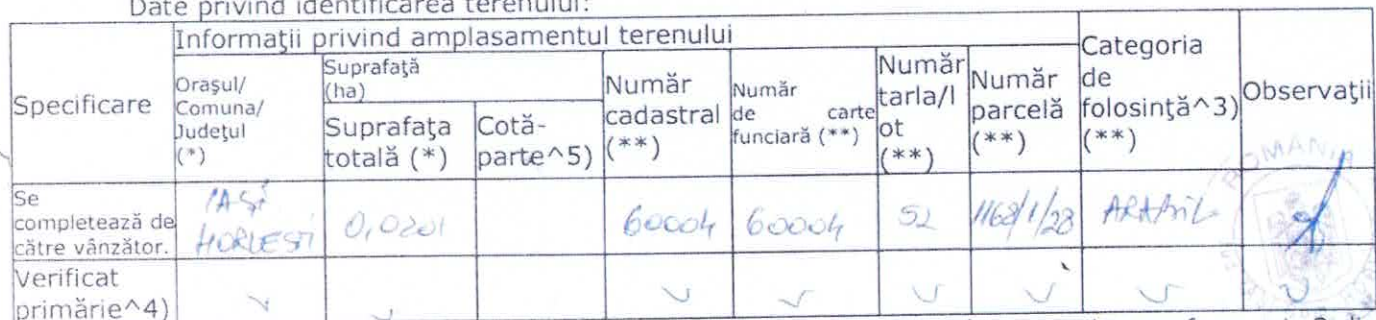 Date privind identificarea terenului:
Informaţii privind amplasamentul terenului
Specificare
Oraşul/
Comuna/
Judeţul
(*)
Suprafaţă
(ha)
Suprafaţa
totală (*)
Cotă-
parte^5)
Număr
cadastral
(**)
Număr
de carte
funciară (**)
Număr
tarla/l
ot
(**)
Număr
parcelă
(**)
Categoria
de
folosinţă^3)
(**)
Observaţii
Se
completează de
către vânzător.
IAŞI
HORLEŞTI
0,0201
60004
60004
52
1168/1/28
ARABIL
ROMANIA
Verificat
primărie^4)